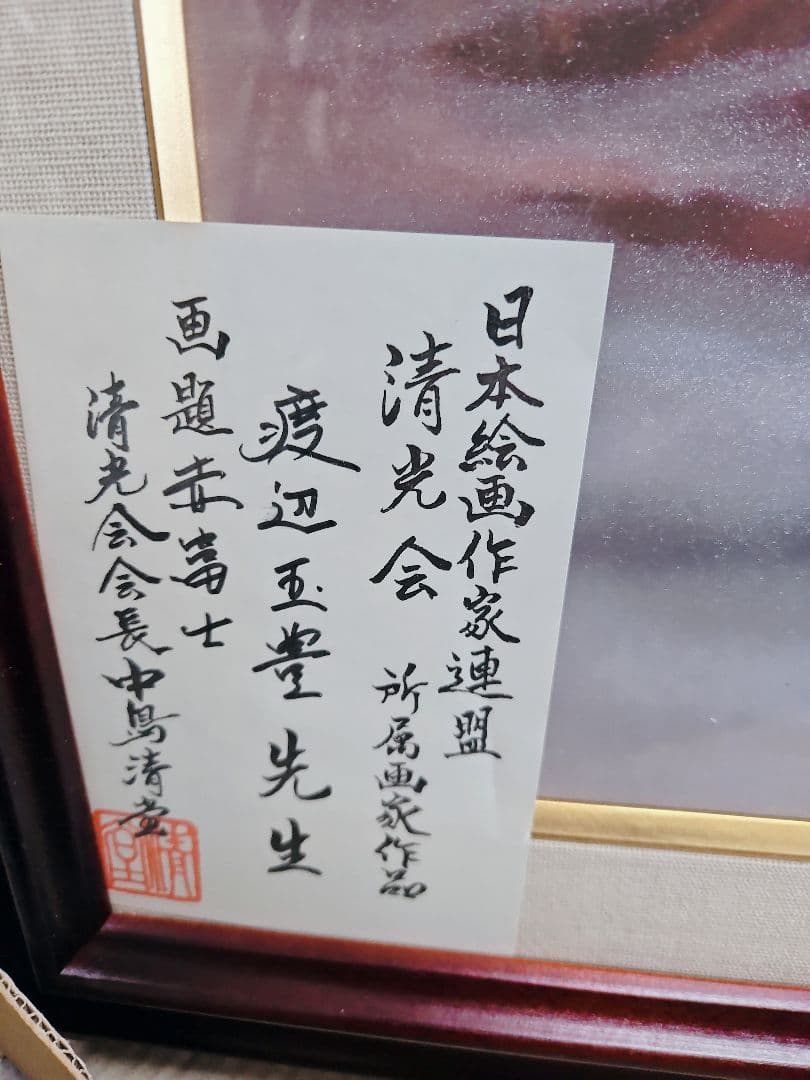 日本絵画作家連盟
清光会 所属画家作品
渡辺玉豊先生
画題赤富士
清光会会長中島清堂
清堂